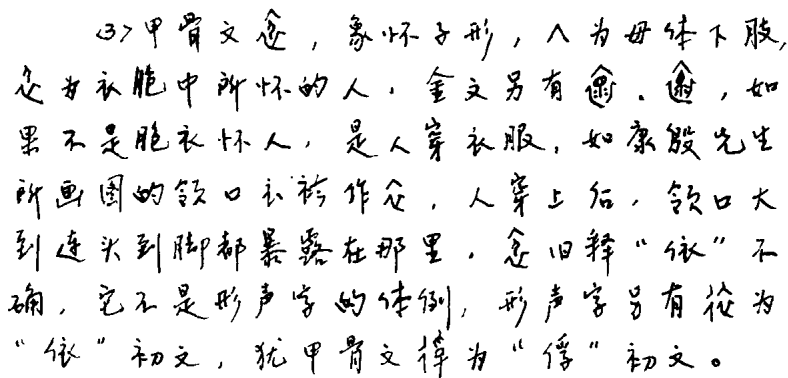 (3)甲骨文,象怀子形,人为母体下肢,
为衣胞中所怀的人。金文另有、,如
果不是胞衣怀人,是人穿衣服,如康殷先生
所画图的领口衣衿作,人穿上后,领口大
到连头到脚都暴露在那里。旧释“依”不
确,它不是形声字的体例,形声字另有为
“依”初文,犹甲骨文为“俘”初文。